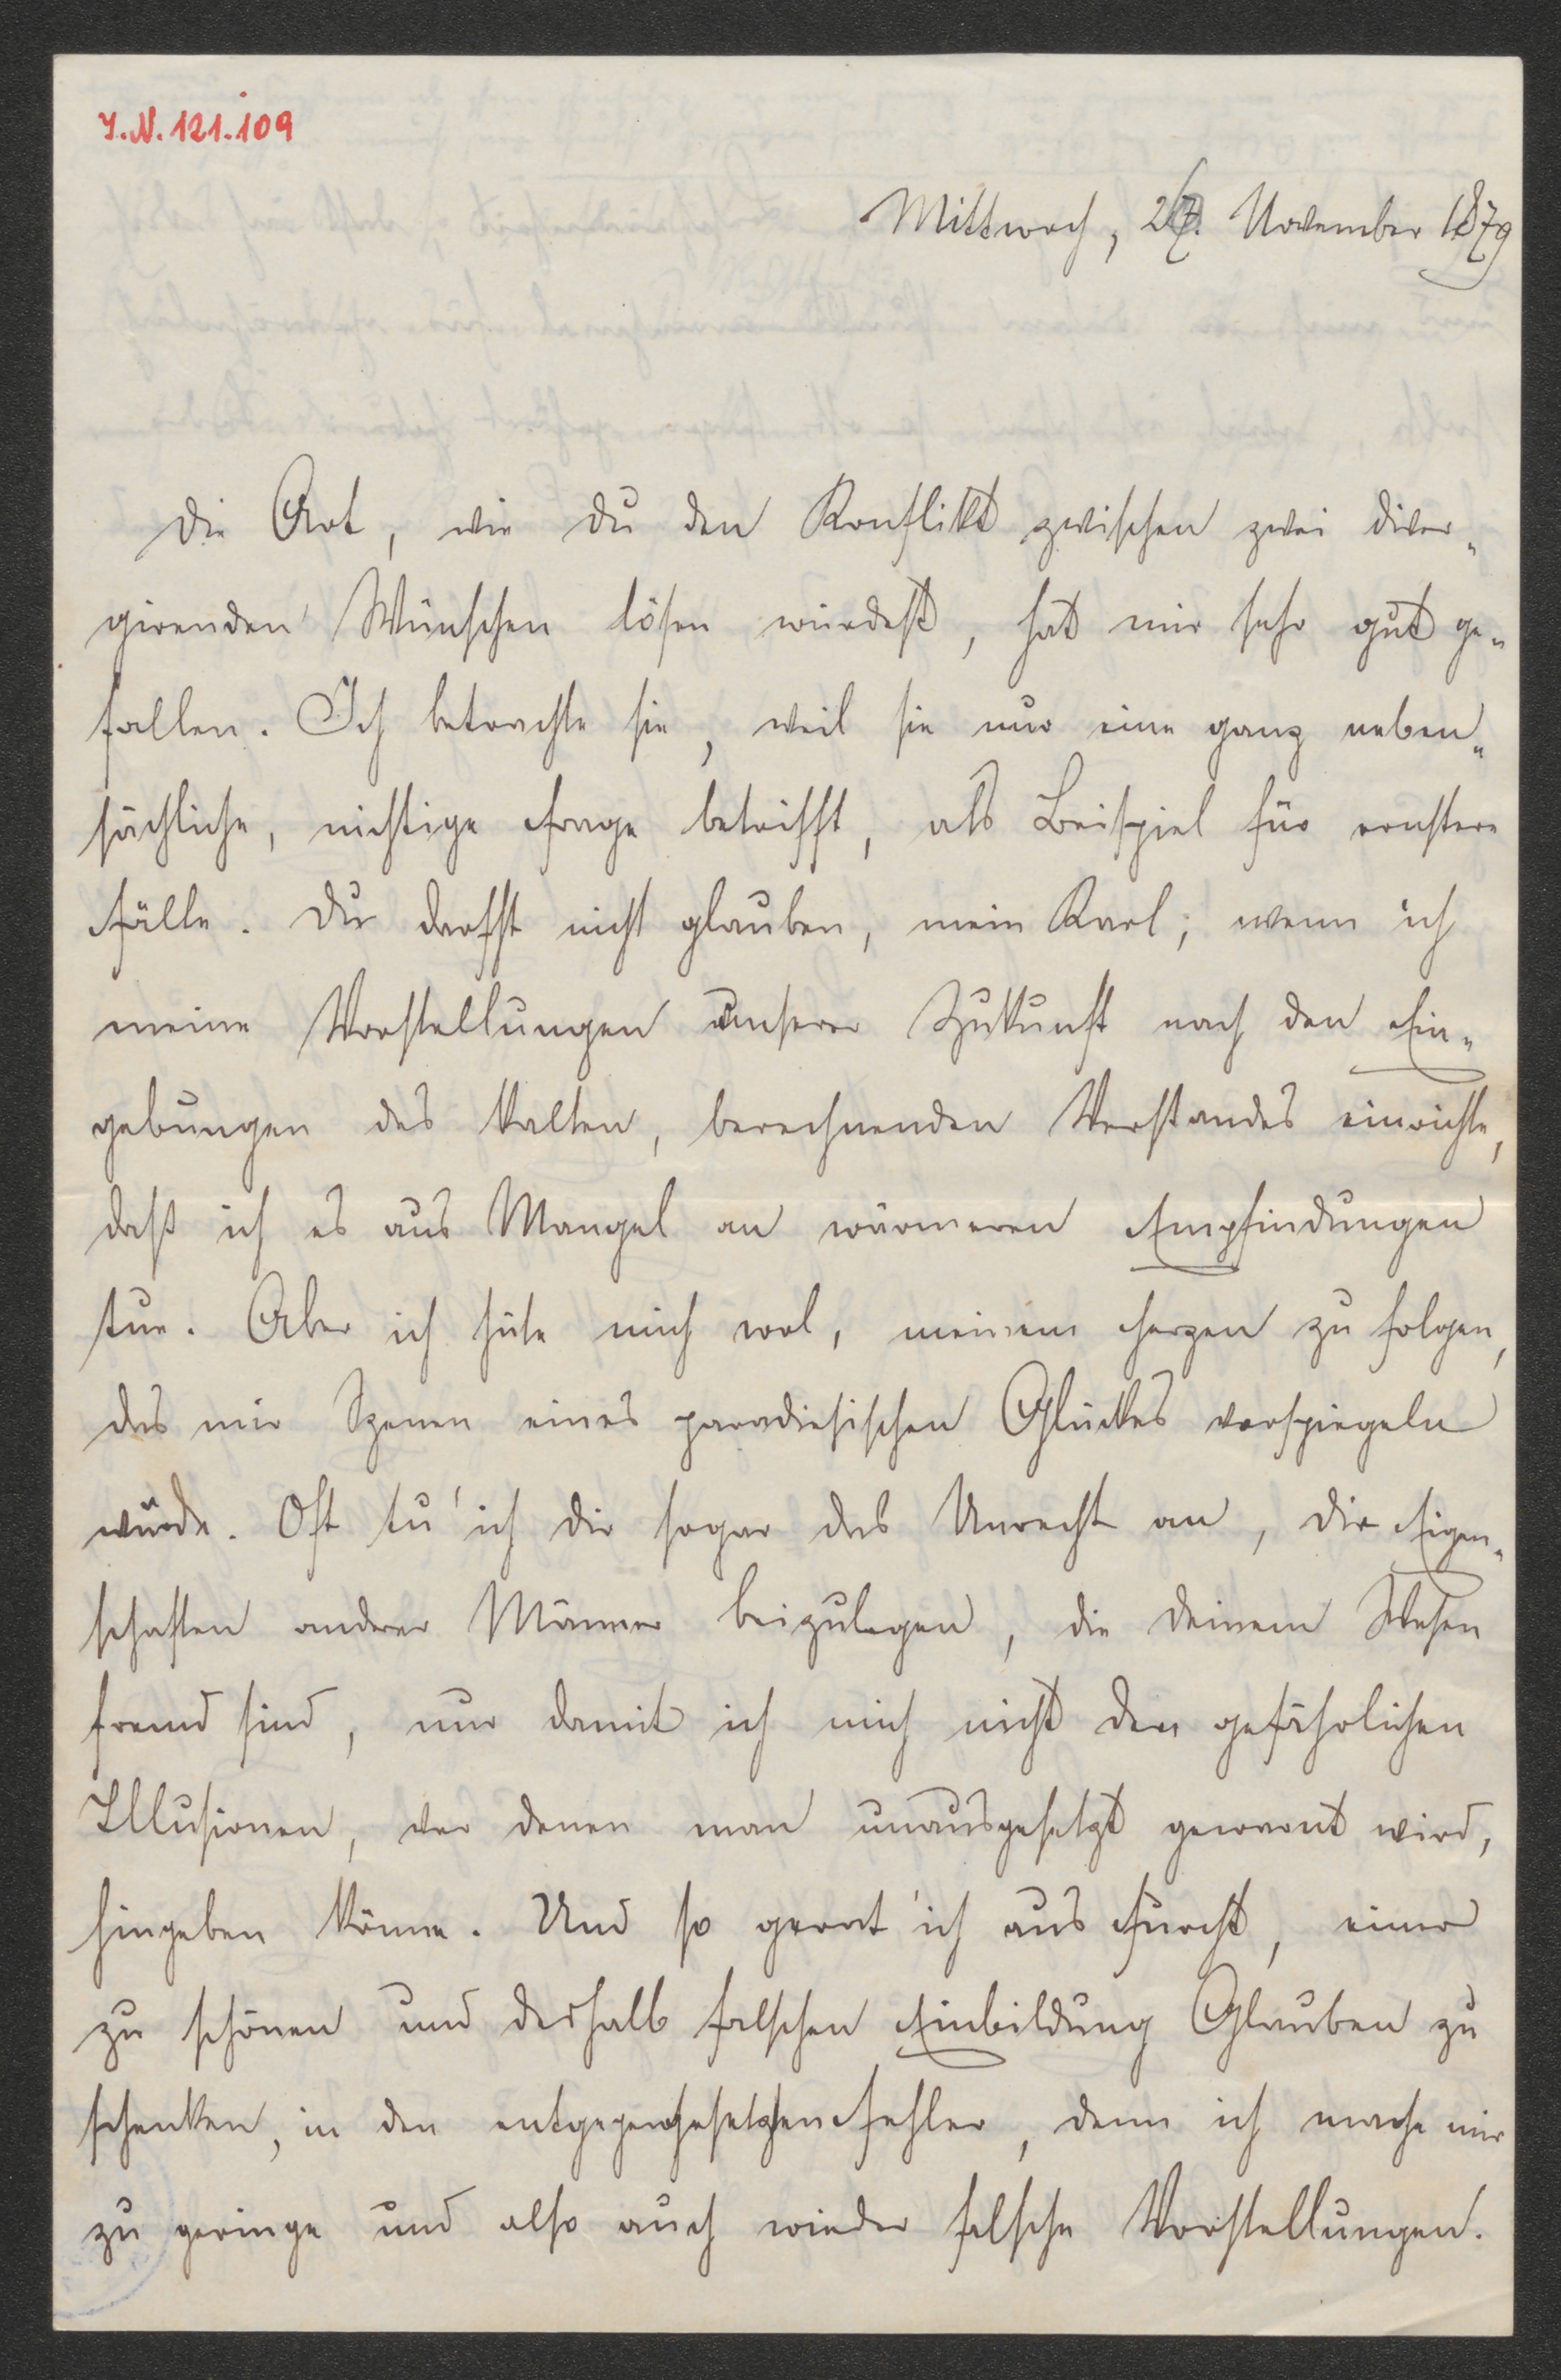 I.N. 121.109
Mittwoch, 26. November 1879
Die Art, wie Du den Konflikt zwischen zwei diver„
girenden Wünschen lösen würdest, hat mir sehr gut ge„
fallen. Ich betrachte sie, weil sie nur eine ganz neben„
sächliche, nichtige Frage betrifft, als Beispiel für ernstere
Fälle. Du darfst nicht glauben, mein Karl, wenn ich
meine Vorstellungen unserer Zukunft nach den Ein„
gebungen des kalten, berechnenden Verstandes einrichte,
daß ich es aus Mangel an wärmeren Empfindungen
tue. Aber ich hüte mich wol, meinem Herzen zu folgen,
das mir Szenen eines paradiesischen Glückes vorspiegeln
würde. Oft tu' ich Dir sogar das Unrecht an, Dir Eigen„
schaften anderer Männer beizulegen, die Deinem Wesen
fremd sind, nur damit ich mich nicht den gefährlichen
Illusionen, vor denen man unausgesetzt gewarnt wird,
hingeben könne. Und so gerat' ich aus Furcht, einer
zu schönen und deshalb falschen Einbildung Glauben zu
schenken, in den entgegengesetzten Fehler, denn ich mache mir
zu geringe und also auch wieder falsche Vorstellungen.